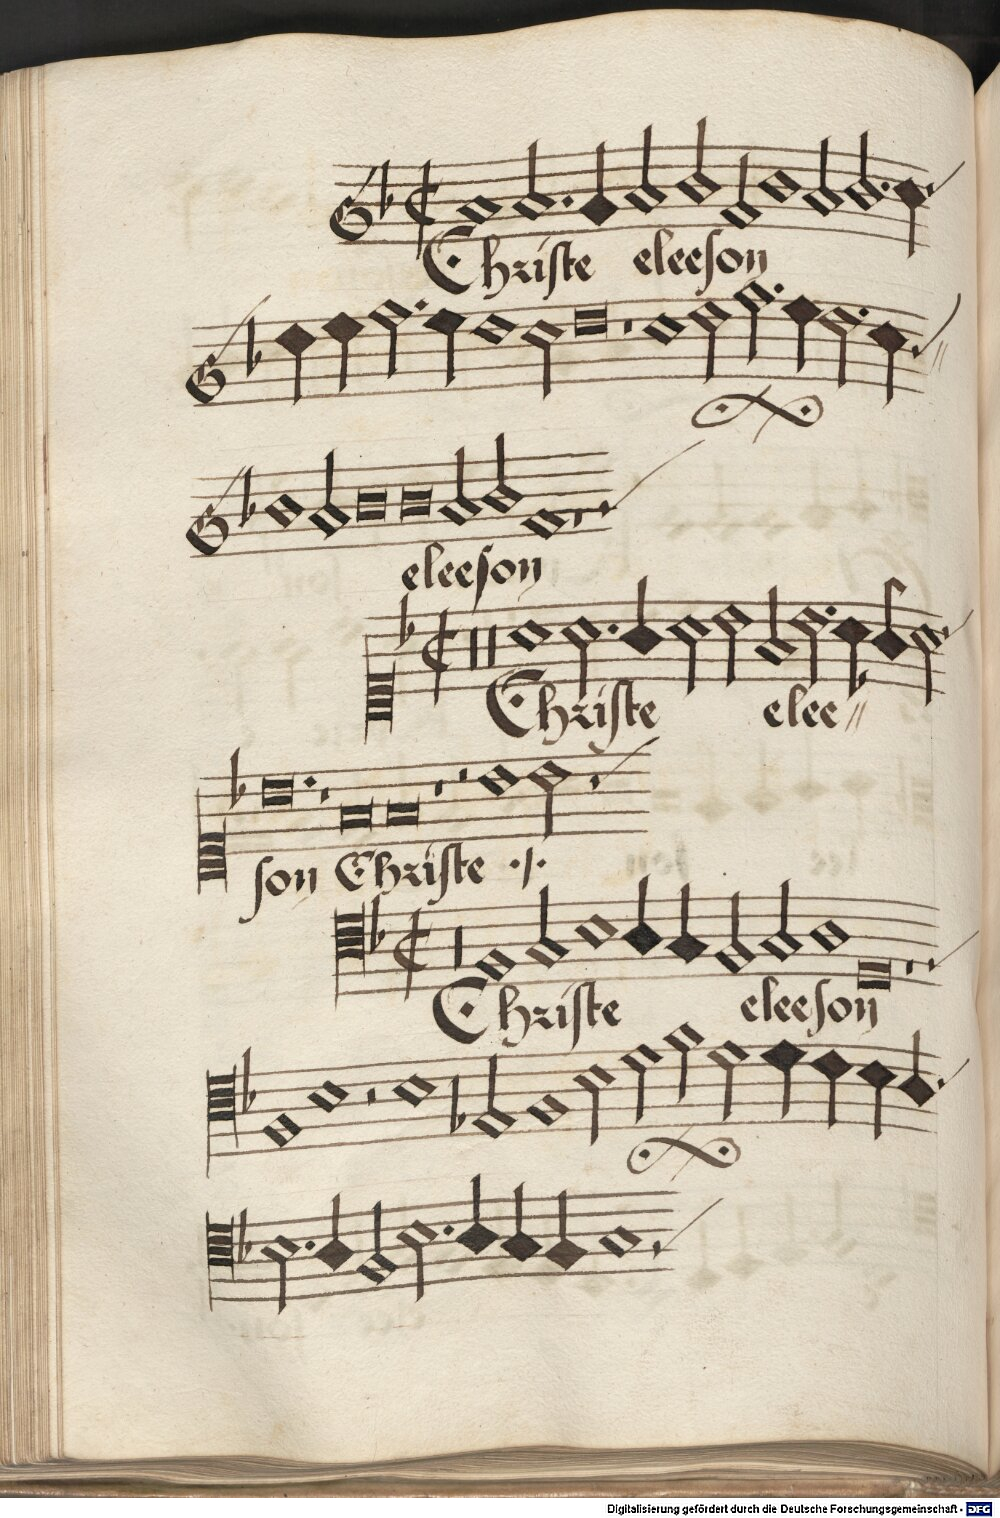 Christe eleeson
eleeson
Christe elee//
son Christe ·/·
Christe eleeson
Digitalisierung gefördert durch die Deutsche Forschungsgemeinschaft - DFG